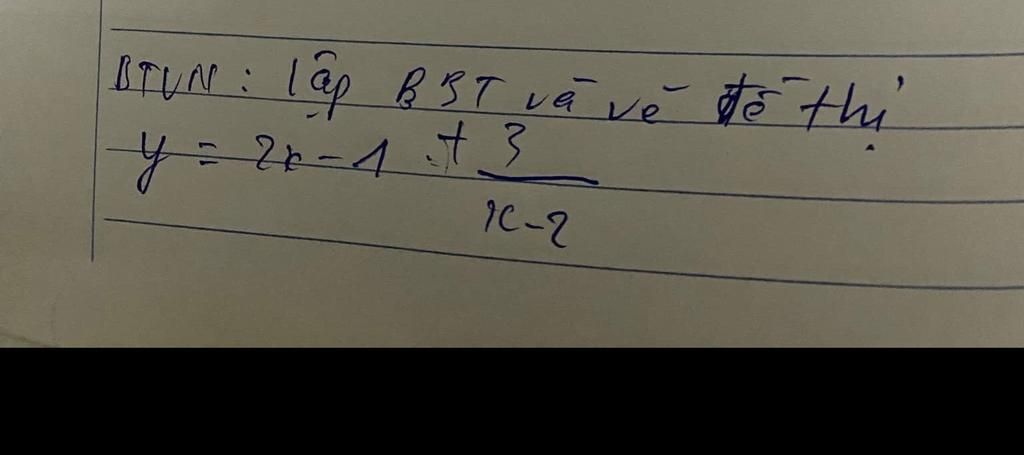 BTVN: lập BBT và vẽ đồ thị
y = 2x - 1 + 3/(x - 2)